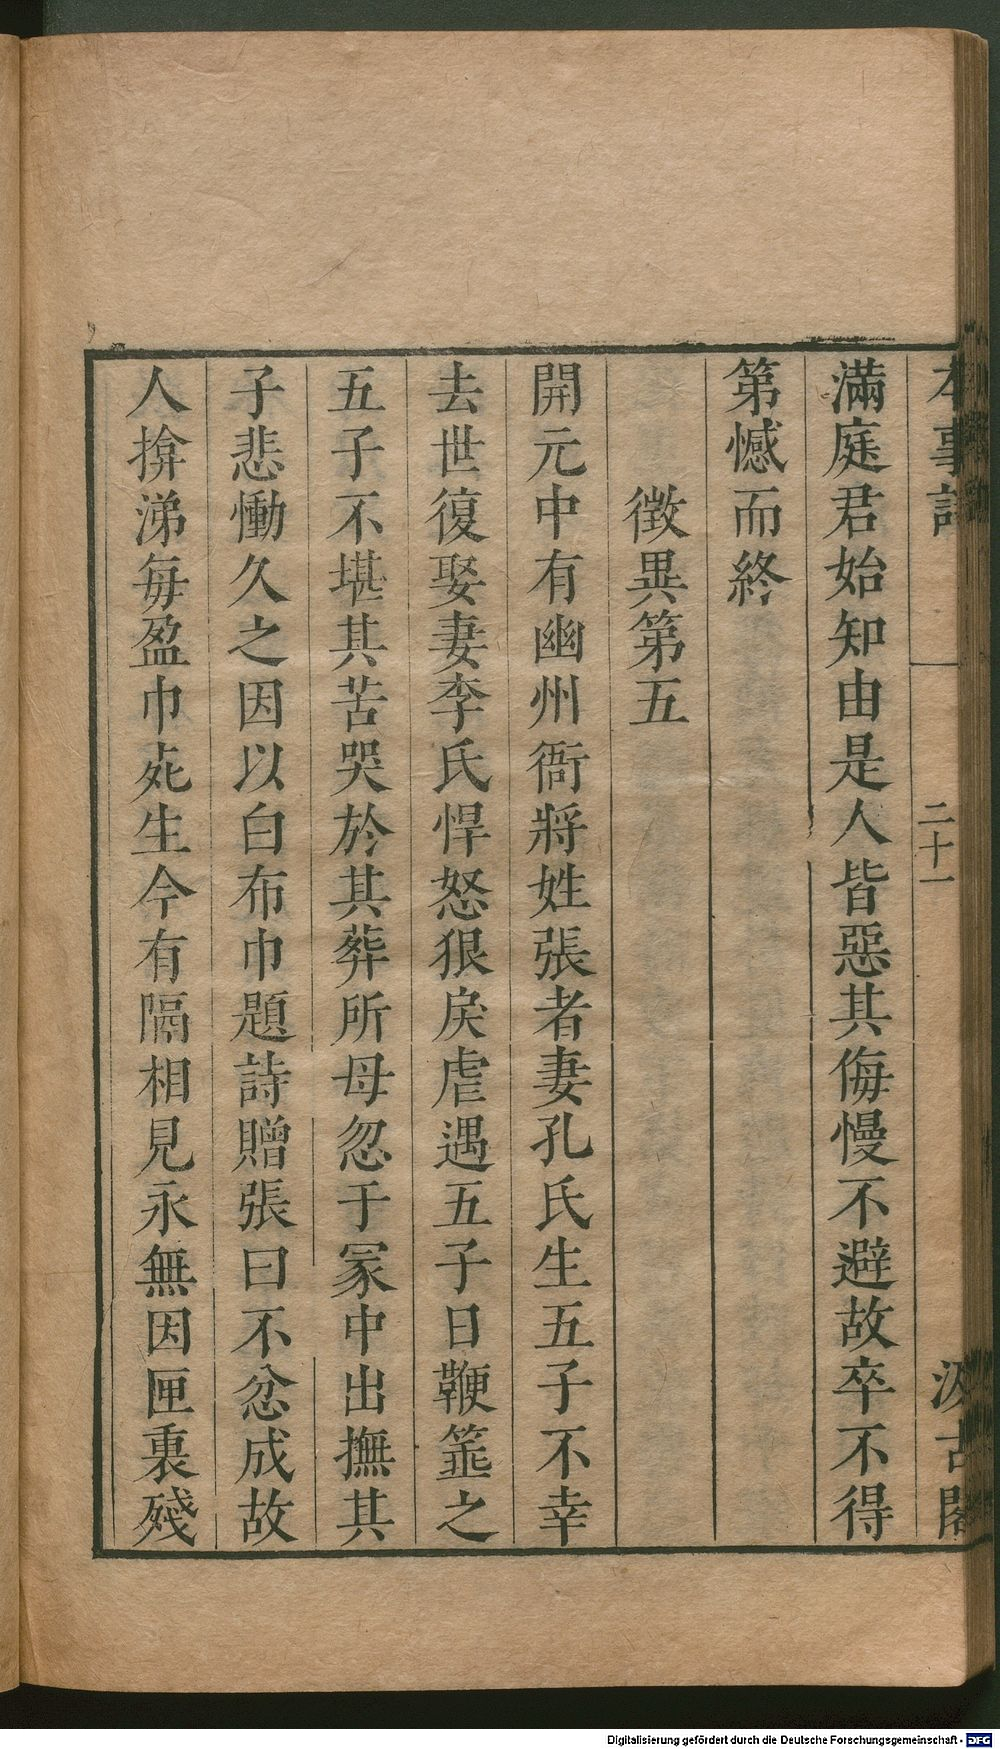 本事詩 二十一 汲古閣
滿庭君始知由是人皆惡其侮慢不避故卒不得
第憾而終
徵異第五
開元中有幽州衙將姓張者妻孔氏生五子不幸
去世復娶妻李氏悍怒狠戾虐遇五子日鞭箠之
五子不堪其苦哭於其葬所母忽于冢中出撫其
子悲慟久之因以白布巾題詩贈張曰不忿成故
人揜涕每盈巾死生今有隔相見永無因匣裏殘
Digitalisierung gefördert durch die Deutsche Forschungsgemeinschaft - DFG